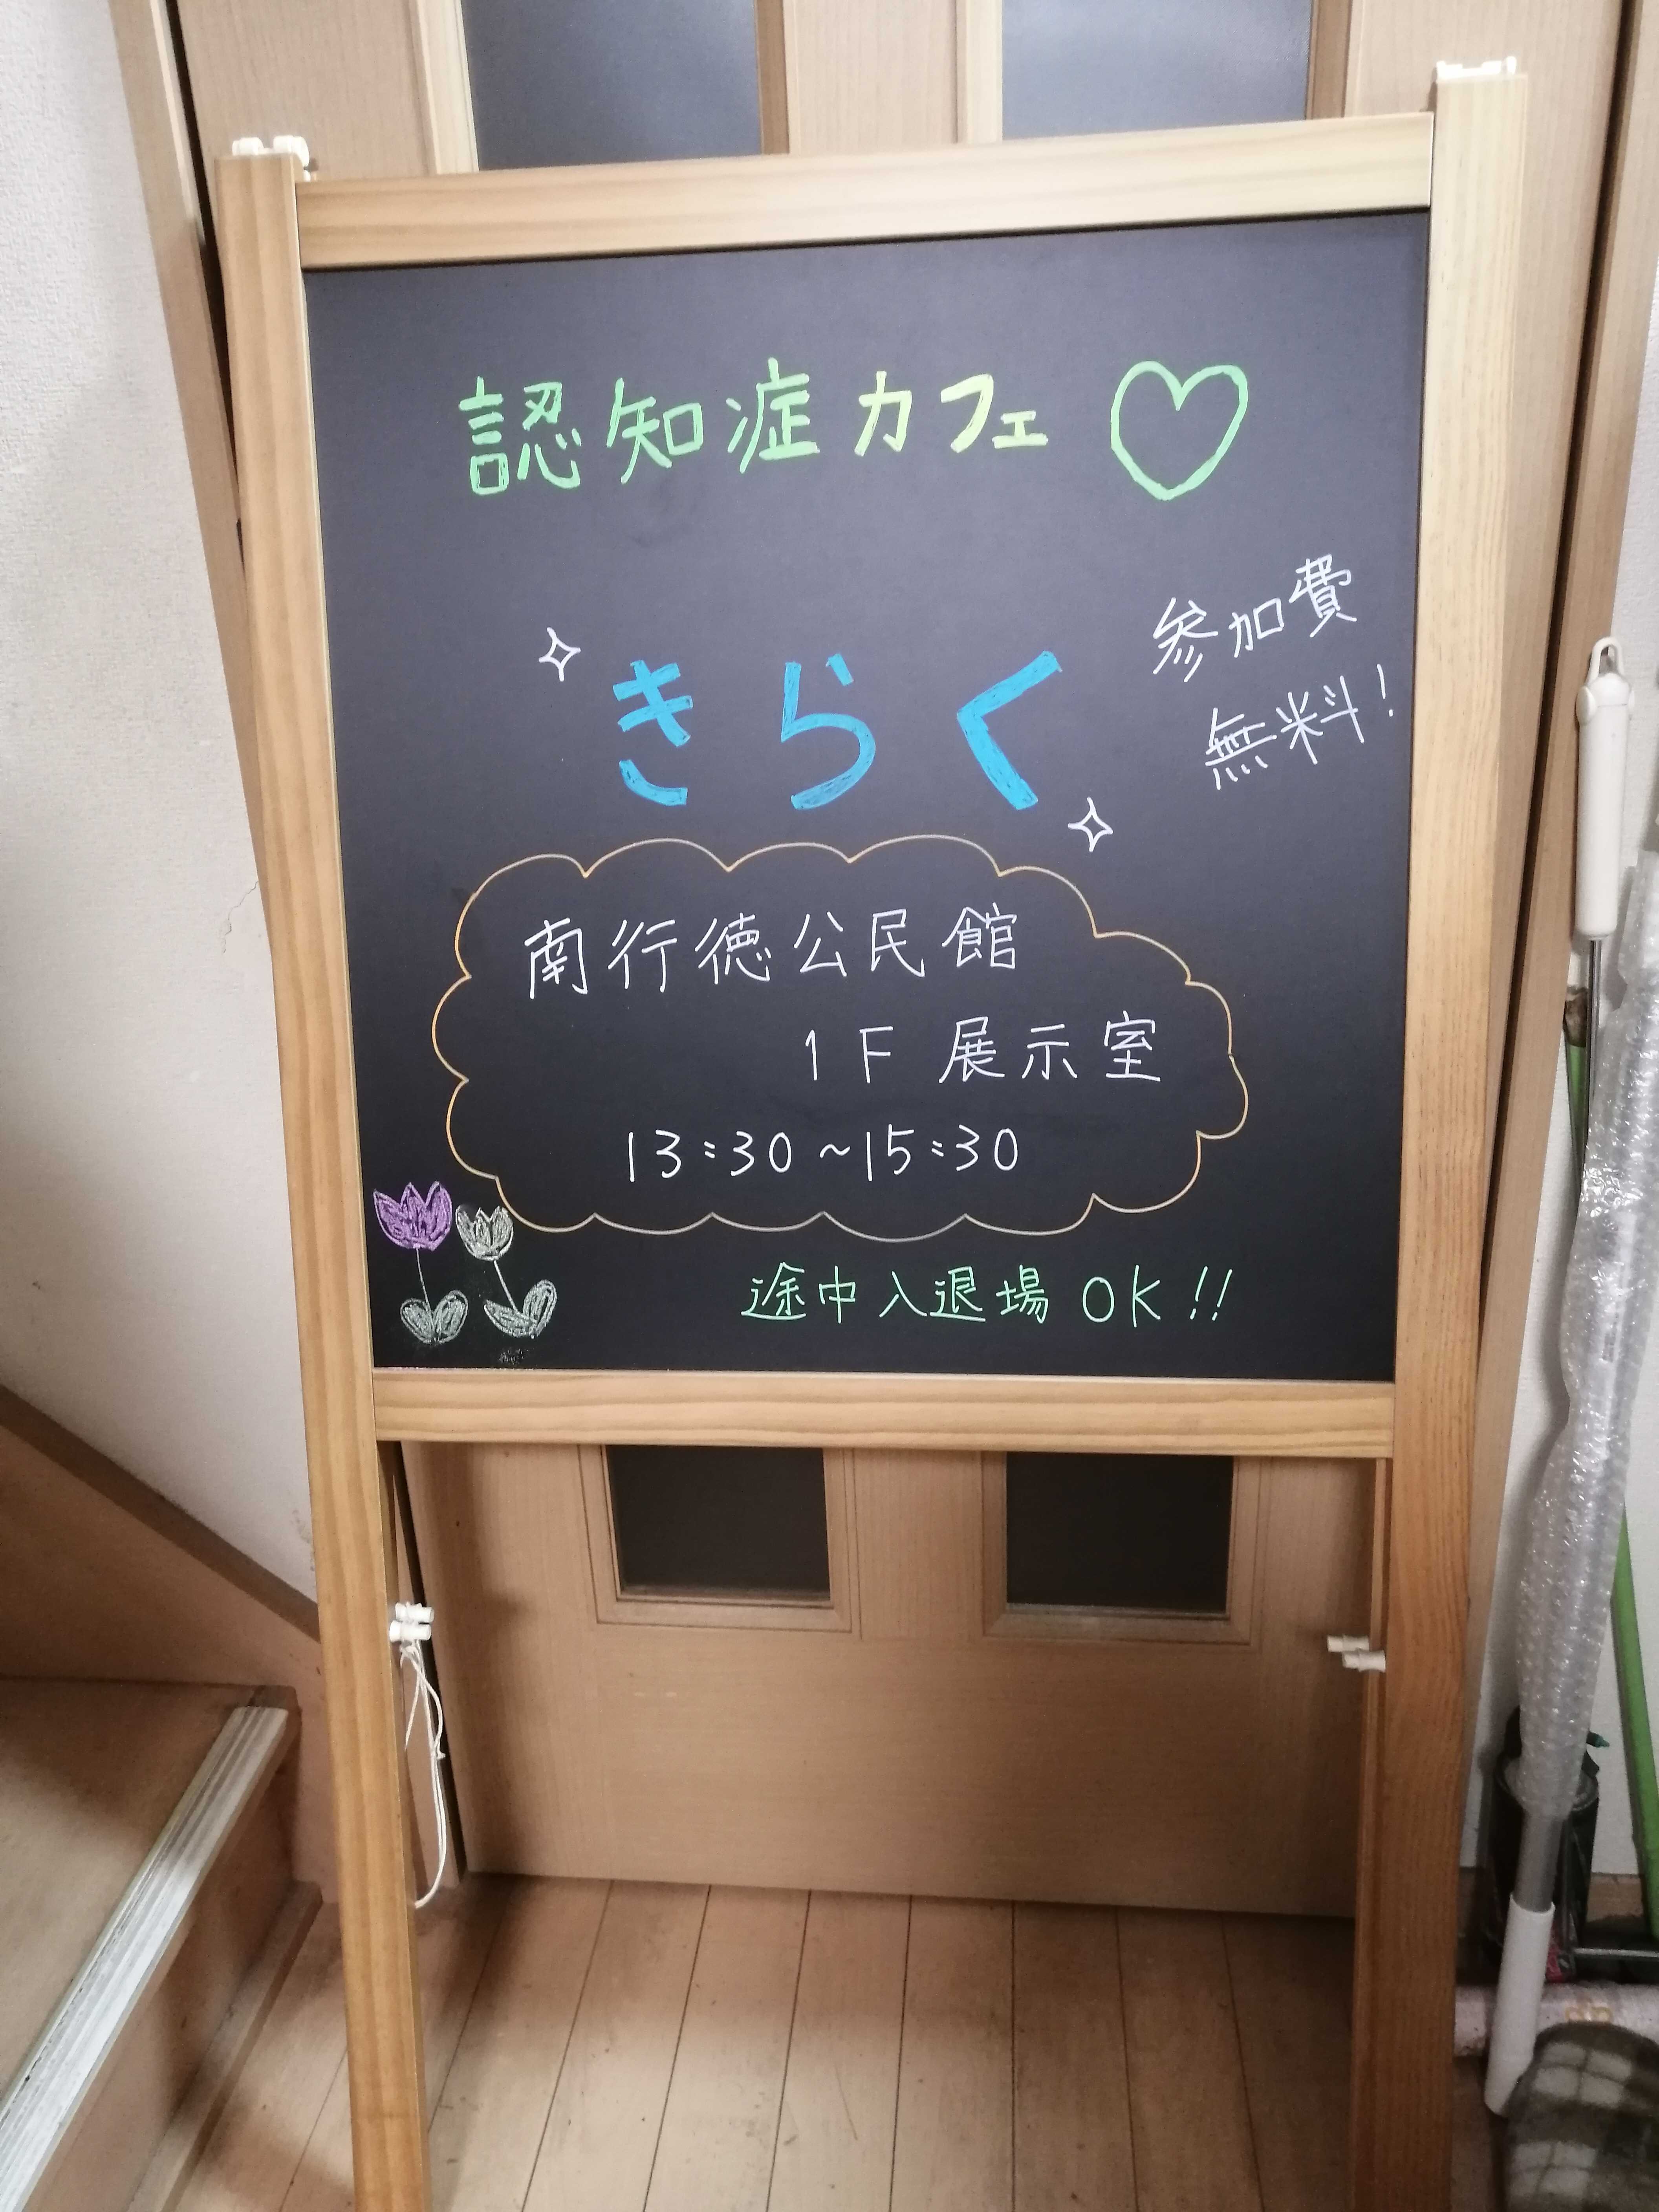 認知症カフェ♡
きらく
参加費
無料!
南行徳公民館
1F 展示室
13:30~15:30
途中入退場 OK!!